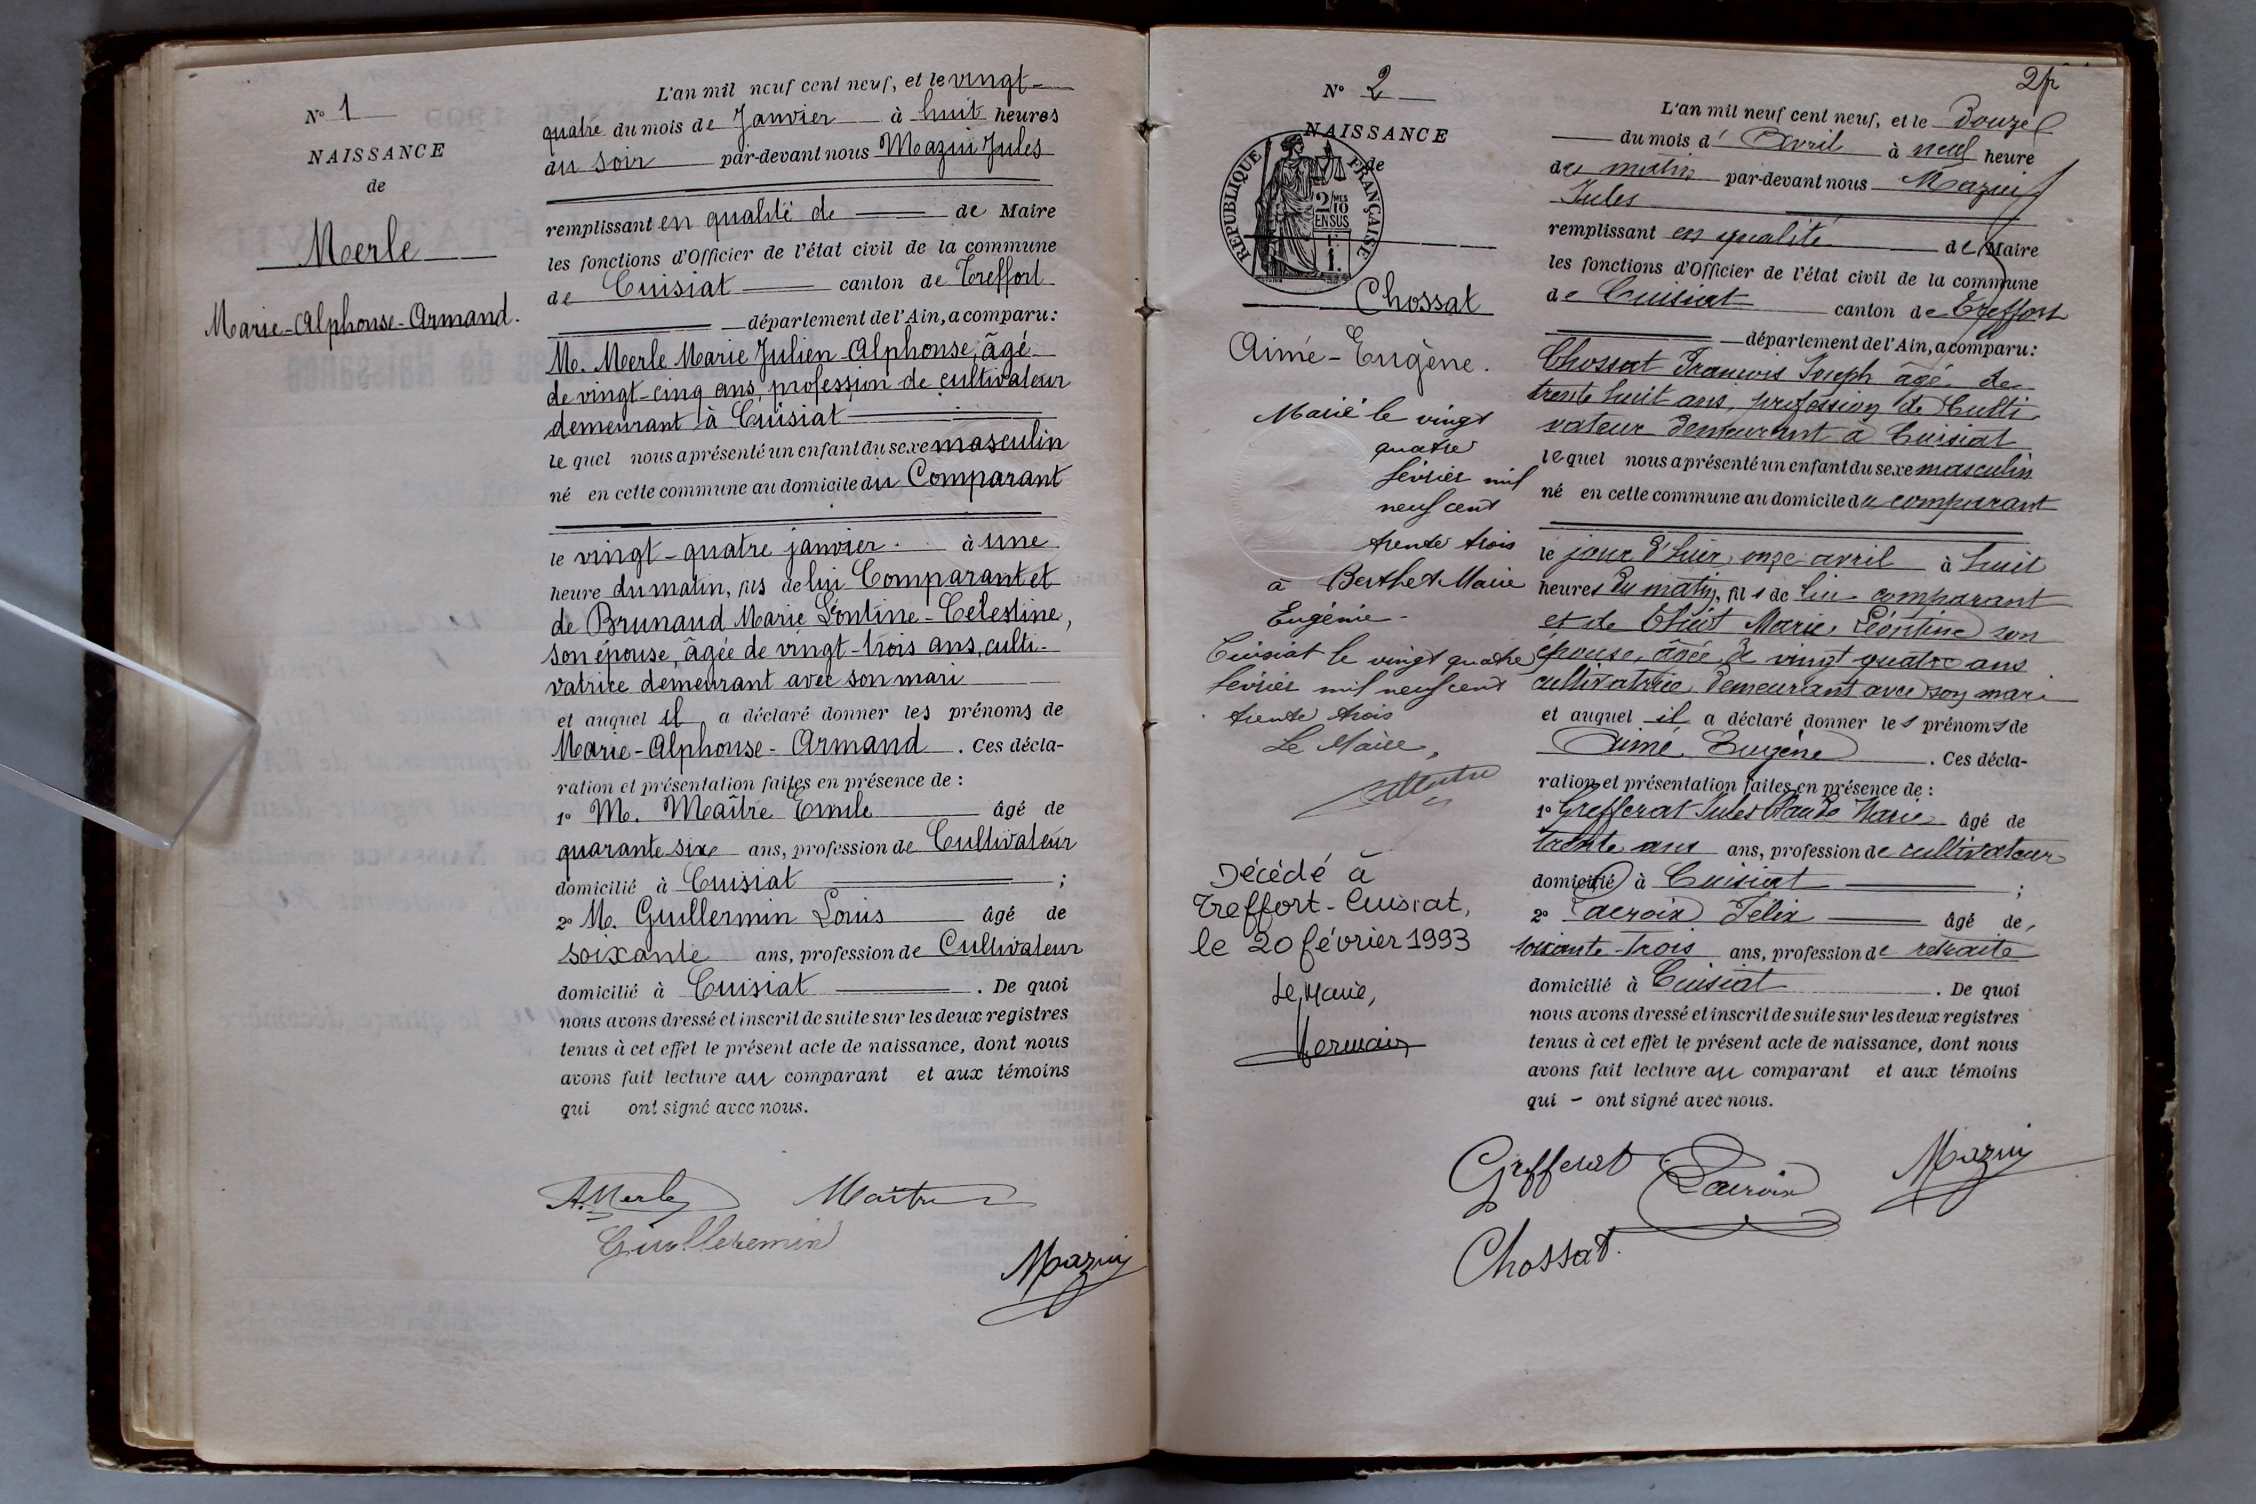 N° 1
NAISSANCE
de
Merle
Marie-Alphonse-Armand.
L'an mil neuf cent neuf, et le vingt-
quatre du mois de Janvier à huit heures
du soir par-devant nous Mazui Jules
remplissant en qualité de de Maire
les fonctions d'Officier de l'état civil de la commune
de Cuisiat canton de Treffort
département de l'Ain, a comparu:
M. Merle Marie Julien Alphonse, âgé
de vingt-cinq ans, profession de cultivateur
demeurant à Cuisiat
lequel nous a présenté un enfant du sexe masculin
né en cette commune au domicile du Comparant
le vingt-quatre janvier. à une
heure du matin, fils de lui Comparant et
de Brunaud Marie Léontine-Célestine,
son épouse, âgée de vingt-trois ans, culti-
vatrice demeurant avec son mari
et auquel il a déclaré donner les prénoms de
Marie-Alphonse-Armand. Ces décla-
ration et présentation faites en présence de :
1° M. Maître Emile âgé de
quarante-six ans, profession de Cultivateur
domicilié à Cuisiat ;
2° M. Guillermin Louis âgé de
soixante ans, profession de Cultivateur
domicilié à Cuisiat. De quoi
nous avons dressé et inscrit de suite sur les deux registres
tenus à cet effet le présent acte de naissance, dont nous
avons fait lecture au comparant et aux témoins
qui ont signé avec nous.
A. Merle Maître
Guillermin
Mazui
2
N° 2
NAISSANCE
de
REPUBLIQUE FRANÇAISE
2/10 MES
EN SUS
1 F.
Chossat
Aimé-Eugène.
Marié le vingt
quatre
février mil
neuf cent
trente trois
à Berthet Marie
Eugénie
Cuisiat le vingt quatre
février mil neuf cent
trente trois
Le Maire,
Décédé à
Treffort-Cuisiat,
le 20 février 1993
Le Maire,
L'an mil neuf cent neuf, et le Douze
du mois d'Avril à neuf heure
du matin par-devant nous Mazui
Jules
remplissant en qualité de Maire
les fonctions d'Officier de l'état civil de la commune
de Cuisiat canton de Treffort
département de l'Ain, a comparu:
Chossat François Joseph âgé de
trente huit ans, profession de Culti
vateur demeurant à Cuisiat
lequel nous a présenté un enfant du sexe masculin
né en cette commune au domicile du comparant
le jour d'hier onze avril à huit
heures du matin, fils de lui comparant
et de Marie Léontine son
épouse, âgée de vingt quatre ans
cultivatrice, demeurant avec son mari
et auquel il a déclaré donner les prénoms de
Aimé Eugène. Ces décla-
ration et présentation faites en présence de :
1° Grefferat Jules Claude Marie âgé de
trente ans ans, profession de cultivateur
domicilié à Cuisiat ;
2° Lacroix Félix âgé de,
soixante-trois ans, profession de retraité
domicilié à Cuisiat. De quoi
nous avons dressé et inscrit de suite sur les deux registres
tenus à cet effet le présent acte de naissance, dont nous
avons fait lecture au comparant et aux témoins
qui - ont signé avec nous.
Grefferat Lacroix Mazui
Chossat.